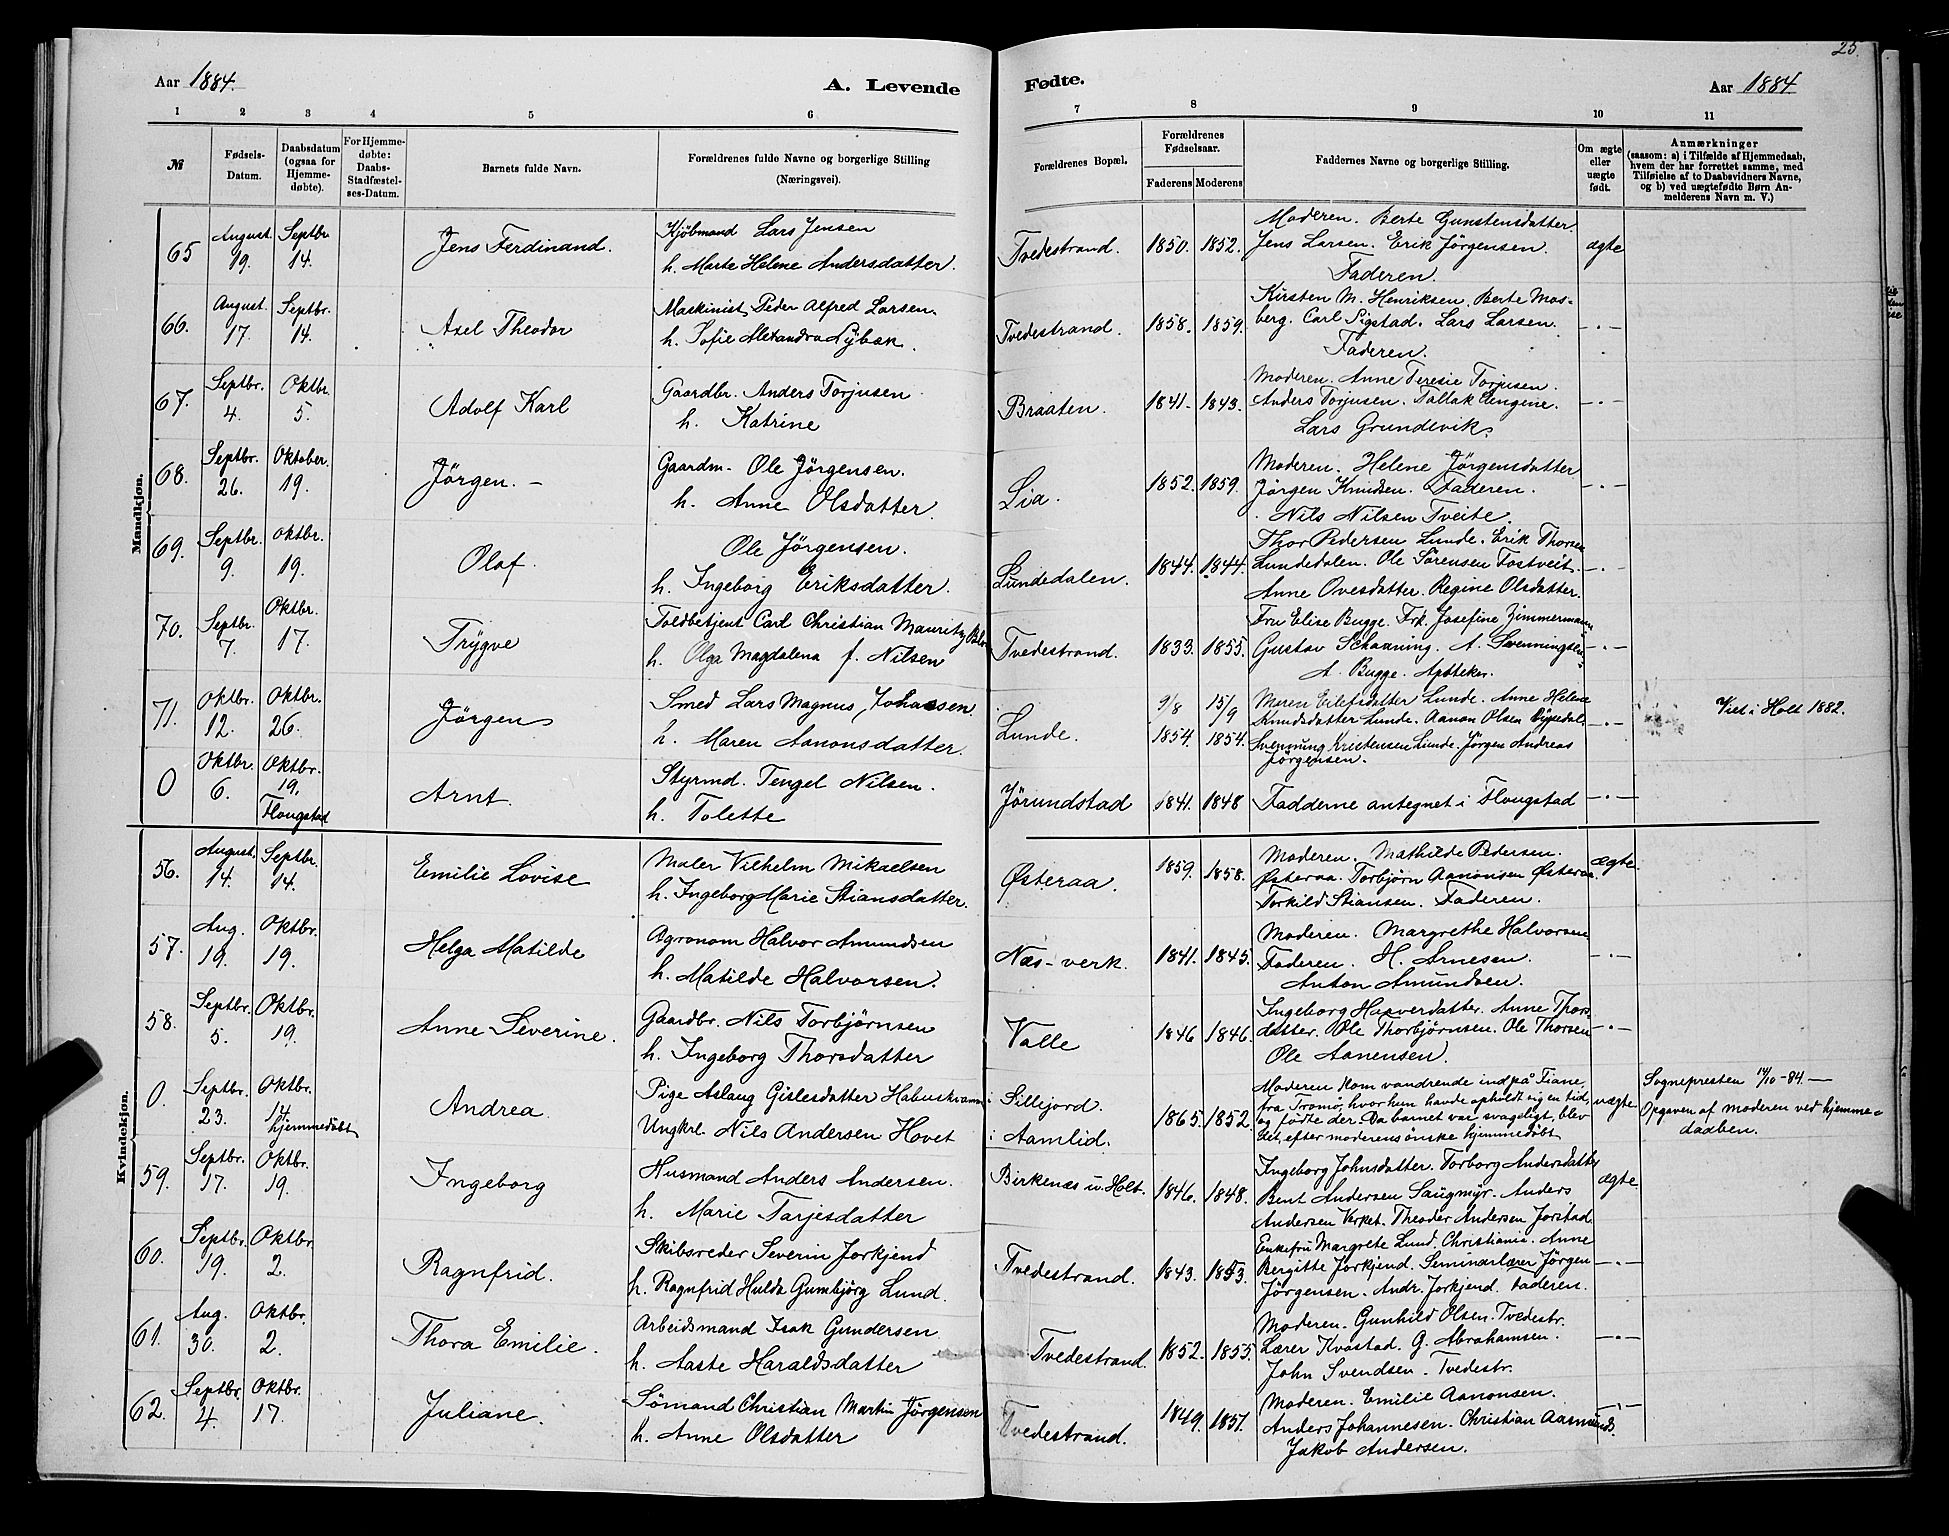 25.
Aar 1884.
A. Levende
Fødte.
Aar 1884.
1 2 3 4 5 6 7 8 9 10 11
№
Fødsels-Datum.
Daabsdatum (ogsaa for Hjemme-døbte).
For Hjemme-døbte: Daabs-Stadfæstel-ses-Datum.
Barnets fulde Navn.
Forældrenes fulde Navne og borgerlige Stilling (Næringsvei).
Forældrenes Bopæl.
Forældrenes Fødselsaar.
Faderens Moderens
Faddernes Navne og borgerlige Stilling.
Om ægte eller uægte født.
Anmærkninger
(saasom: a) i Tilfælde af Hjemmedaab, hvem der har forrettet samme, med Tilføielse af to Daabsvidners Navne, og b) ved uægtefødte Børn An-melderens Navn m. V.)
Mandkjøn.
65 August. 19. Septbr 14. Jens Ferdinand.
Kjøbmand Lars Jensen
h. Marte Helene Andersdatter.
Tvedestrand. 1850. 1852.
Moderen. Berte Gunstensdatter.
Jens Larsen. Erik Jørgensen
Faderen.
ægte
66. August. 17. Septbr. 14. Axel Theodor
Maskinist Peder Alfred Larsen
h. Sofie Alexandra Nybæk.
Tvedestrand. 1858. 1859.
Kirsten M. Henriksen. Berte Mos-
berg. Carl Sigstad. Lars Larsen.
Faderen.
— . —
67. Septbr. 4. Oktbr. 5. Adolf Karl
Gaardbr. Anders Torjusen
h. Katrine
Braaten. 1841. 1843.
Moderen. Anne Teresie Torjusen.
Anders Torjusen. Tallak Uengene.
Lars Grundevik.
— . —
68. Septbr. 26. Oktober. 19. Jörgen. —
Gaardm. Ole Jörgensen.
h. Anne Olsdatter.
Lia. 1852. 1859.
Moderen. Helene Jørgensdatter
Jørgen Knudsen. Faderen.
Nils Nilsen Tveite.
— . —
69. Septbr. 9. Oktbr. 19. Olaf.
Ole Jørgensen.
h. Ingeborg Eriksdatter.
Lundedalen. 1844. 1844.
Thor Pedersen Lunde. Erik Thorsen
Lundedalen. Ole Sörensen Fostveit.
Anne Ovesdatter. Regine Olsdatter.
— . —
70. Septbr. 7. Oktbr. 17. Trygve
Toldbetjent Carl Christian Mauritz
h. Olga Magdalena f. Nilsen
Tvedestrand. 1833. 1855.
Fru Elise Bugge. Frk. Josefine Zimmermann
Gustav Schanning. A. Svenningsen
A. Bugge. Apotheker.
— . —
71. Oktbr. 12. Oktbr. 26. Jørgen
Smed Lars Magnus Johansen.
h. Maren Aanonsdatter.
Lunde. 9/8 1854. 15/9 1854.
Maren Eilefsdatter Lunde. Anne Helene
Knudsdatter Lunde. Aanon Olsen
Svennung Kristensen Lunde. Jörgen Andreas
Jörgensen.
— . —
Viet i Holt 1882.
0 Oktbr. 6. Oktbr. 19. Flougstad Arnt.
Styrmd. Tengel Nilsen.
h. Tolette
Jørundstad 1841. 1848
Fadderne antegnet i Flougstad
— . —
Kvindekjøn.
56. August. 14. Septbr. 14. Emilie Lovise
Maler Vilhelm Mikaelsen
h. Ingeborg Marie Stiansdatter.
Østeraa. 1859. 1858.
Moderen. Mathilde Pedersen.
Østeraa. Torbjørn Aanonsen Østeraa.
Torkild Stiansen. Faderen.
ægte.
57. Aug. 19. Oktbr. 19. Helga Matilde
Agronom Halvor Amundsen
h. Matilde Halvorsen.
Næs-verk. 1841. 1845.
Moderen. Margrethe Halvorsen
Faderen. H. Arnesen.
Anton Amundsen.
— . —
58. Septbr. 5. Oktbr. 19. Anne Severine.
Gaardbr. Nils Torbjørnsen
h. Ingeborg Thorsdatter
Valle 1846 1846.
Ingeborg Haaversdatter. Anne Thors-
datter. Ole Thorbjørnsen. Ole Thorsen
Ole Aanensen.
— . —
0. Septbr. 23. Oktbr. 14. hjemmedøbt Andrea.
Pige Aslaug Gislesdatter
Ungkrl. Nils Andersen Hovet
i Sillejord.
i Aamlid.
1865. 1852.
Moderen kom vandrende ind på Fiane,
fra Tromö, hvor hun havde opholdt sig en tid,
og fødte der. Da barnet var svageligt, blev
det, efter moderens önske hjemmedøbt
uægte
Sognepresten 14/10-84. —
Opgaven af moderen ved hjemme=
daaben.
59. Septbr. 17. Oktbr. 19. Ingeborg
Husmand Anders Andersen.
h. Marie Tarjesdatter
Birkenæs u. Holt. 1846. 1848.
Ingeborg Johnsdatter. Torborg Andersdatter
Bent Andersen Saugmyr. Anders
Andersen Verket. Theodor Andersen Jorstad.
ægte
60. Septbr. 19. Oktbr. 2. Ragnfrid.
Skibsreder Severin Jorkjend
h. Ragnfrid Hulda Gumbjörg Lund.
Tvedestrand. 1843. 1853.
Enkefru Margrete Lund. Christiania. Anne
Bergitte Jorkjend. Seminarlærer Jørgen
Jørgensen. Andr. Jorkjend. Faderen.
— . —
61. Aug. 30. Oktbr. 2. Thora Emilie.
Arbeidsmand Isak Gundersen.
h. Aaste Haraldsdatter
Tvedestrand. 1852. 1855.
Moderen. Gunhild Olsen. Tvedestr.
Lærer Kvastad. G. Abrahamsen.
John Svendsen. Tvedestr.
— . —
62. Septbr. 4. Oktbr. 17. Juliane.
Sømand Christian Martin Jørgensen
h. Anne Olsdatter
Tvedestrand. 1849. 1851.
Moderen. Emilie Aanonsen.
Anders Johannesen. Christian Aasmunds.
Jakob Andersen.
— . —